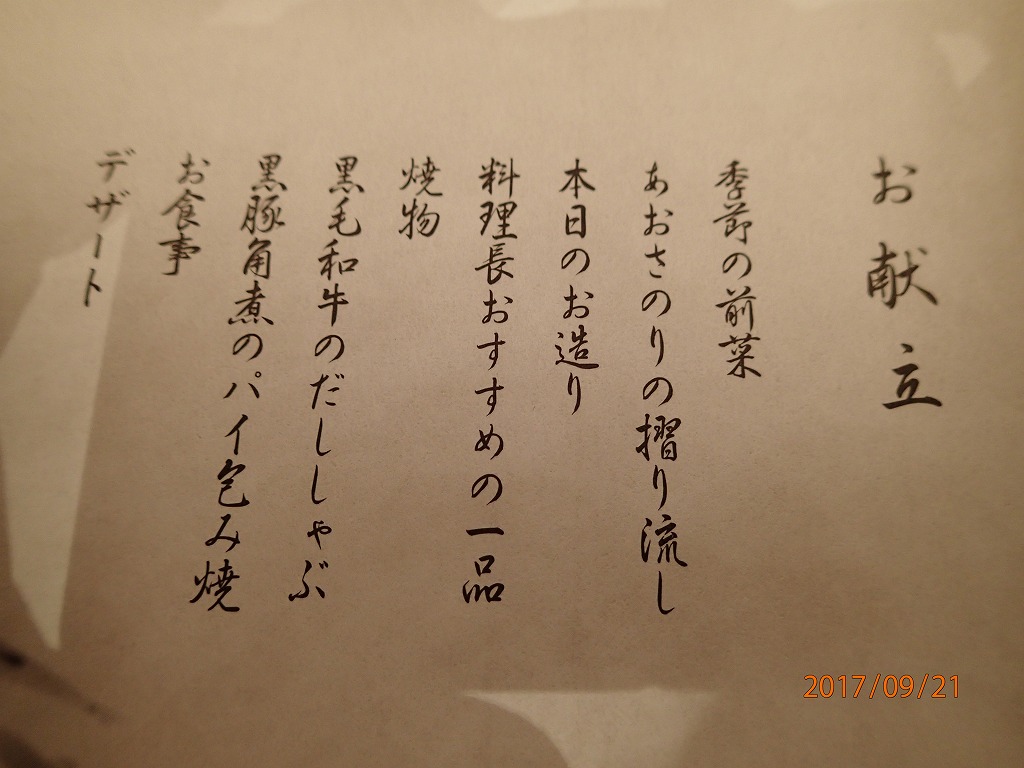 お献立
季節の前菜
あおさのりの摺り流し
本日のお造り
料理長おすすめの一品
焼物
黒毛和牛のだししゃぶ
黒豚角煮のパイ包み焼
お食事
デザート
2017/09/21